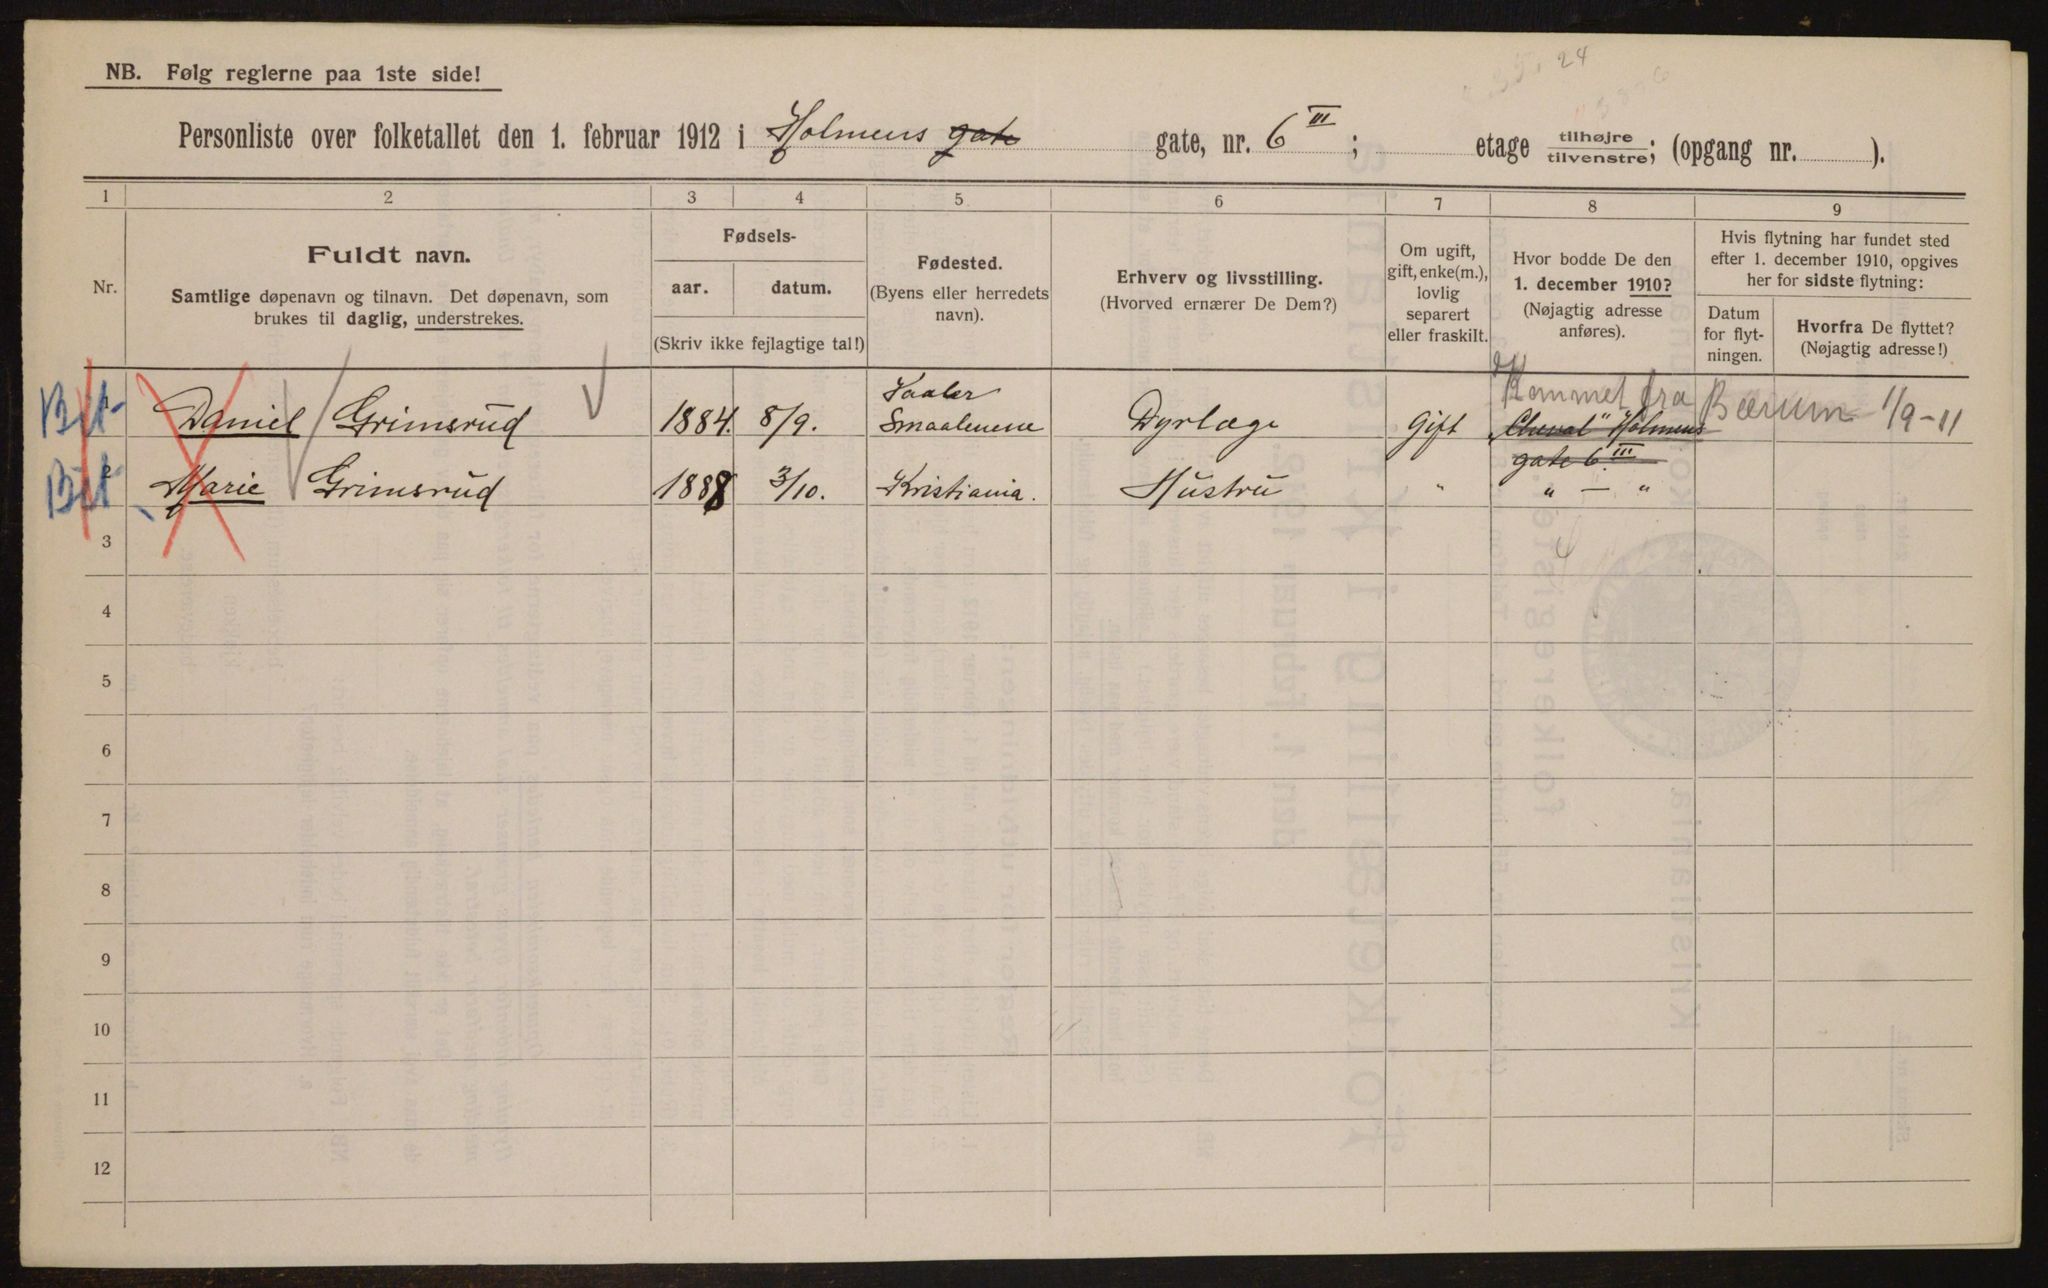 NB. Følg reglerne paa 1ste side!
24
Personliste over folketallet den 1. februar 1912 i Holmens gate gate, nr. 6 III ; etage tilhøjre tilvenstre; (opgang nr. ).
1 2 3 4 5 6 7 8 9
Nr.
Fuldt navn.
Samtlige døpenavn og tilnavn. Det døpenavn, som
brukes til daglig, understrekes.
Fødsels-
aar. datum.
(Skriv ikke fejlagtige tal!)
Fødested.
(Byens eller herredets
navn).
Erhverv og livsstilling.
(Hvorved ernærer De Dem?)
Om ugift,
gift, enke(m.),
lovlig
separert
eller fraskilt.
Hvor bodde De den
1. december 1910?
(Nøjagtig adresse
anføres).
Hvis flytning har fundet sted
efter 1. december 1910, opgives
her for sidste flytning:
Datum
for flyt-
ningen.
Hvorfra De flyttet?
(Nøjagtig adresse!)
Kommet fra Bærum 1/9-11
Daniel Grimsrud 1884. 8/9. Vaaler Smaalenene Dyrlæge Gift "Cheval" Holmens
gate 6 III
2 Marie Grimsrud 1888 3/10. Kristiania. Hustru " " — "
3
4
5
6
7
8
9
10
11
12